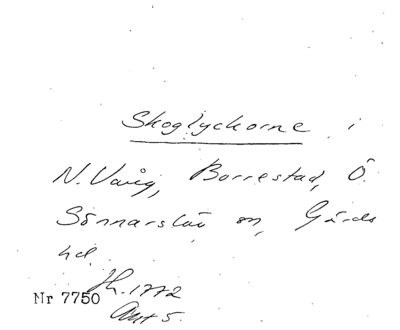 Skoglyckorne i
N. Vång, Borrestad, Ö.
Sönnarslöv sn, Gärds
hd.
Jh. 1772
Nr 7750
Akt 5.